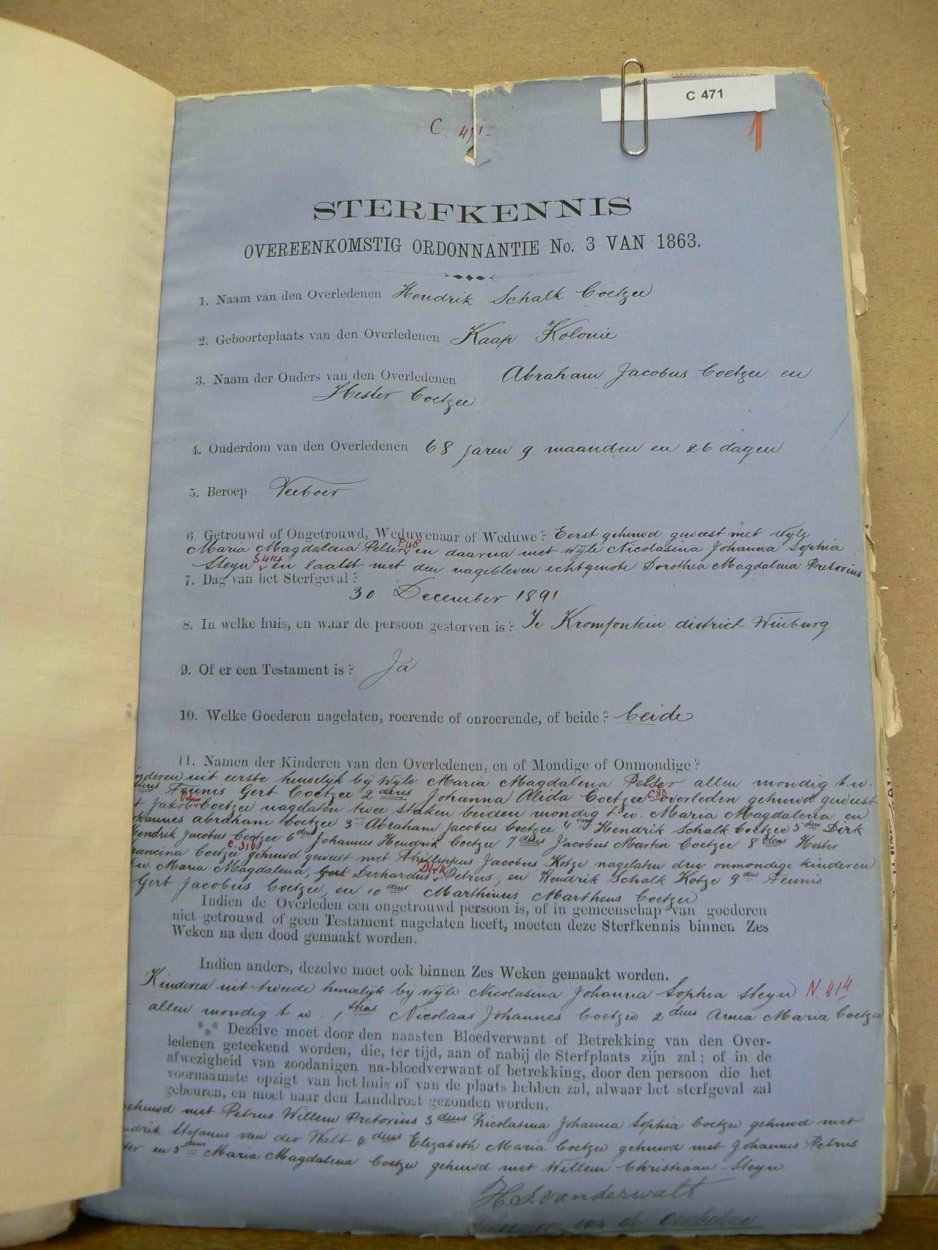 C 471
C. 471.
1
STERFKENNIS
OVEREENKOMSTIG ORDONNANTIE No. 3 VAN 1863.
1. Naam van den Overledenen Hendrik Schalk Coetzee
2. Geboorteplaats van den Overledenen Kaap Kolonie
3. Naam der Ouders van den Overledenen Abraham Jacobus Coetzee en
Hester Coetzee
4. Ouderdom van den Overledenen 68 jaren 9 maanden en 26 dagen
5. Beroep Veeboer
6. Getrouwd of Ongetrouwd, Weduwenaar of Weduwe? Eerst gehuwd geweest met wyle
Maria Magdalena Pelser en daarna met wyle Nicolasina Johanna Sophia
Steyn en laatst met den nagebleven echtgenote Dorothea Magdalena Pretorius
7. Dag van het Sterfgeval?
30 December 1891
8. In welke huis, en waar de persoon gestorven is? Te Kromfontein district Winburg
9. Of er een Testament is? Ja
10. Welke Goederen nagelaten, roerende of onroerende, of beide? beide
11. Namen der Kinderen van den Overledenen, en of Mondige of Onmondige?
uit eerste huwelijk bij wyle Maria Magdalena Pelser allen mondig t.w.
Teunis Gert Coetzee 2dens Johanna Alida Coetzee overleden gehuwd geweest
Coetzee nagelaten twee staken beiden mondig t.w. Maria Magdalena en
Abraham Coetzee 3 Abraham Jacobus Coetzee 4 Hendrik Schalk Coetzee 5dens Dirk
Hendrik Jacobus Coetzee 6dens Johannes Hendrik Coetzee 7dens Jacobus Martin Coetzee 8dens Hester
Coetzee gehuwd geweest met Jacobus Kotze nagelaten drie onmondige kinderen
Maria Magdalena, Gert Derhardus Dirk Petrus, en Hendrik Schalk Kotze 9den Teunis
Gert Jacobus Coetzee, en 10dens Marthinus Martheus Coetzee
Indien de Overleden een ongetrouwd persoon is, of in gemeenschap van goederen
niet getrouwd of geen Testament nagelaten heeft, moeten deze Sterfkennis binnen Zes
Weken na den dood gemaakt worden.
Indien anders, dezelve moet ook binnen Zes Weken gemaakt worden.
Kinderen uit tweede huwelijk bij wyle Nicolasina Johanna Sophia Steyn N. 414
allen mondig t w 1stens Nicolaas Johannes Coetzee 2dens Anna Maria Coetzee
Dezelve moet door den naasten Bloedverwant of Betrekking van den Over-
ledenen geteekend worden, die, ter tijd, aan of nabij de Sterfplaats zijn zal; of in de
afwezigheid van zoodanigen na-bloedverwant of betrekking, door den persoon die het
voornaamste opzigt van het huis of van de plaats hebben zal, alwaar het sterfgeval zal
gebeuren, en moet naar den Landdrost gezonden worden.
gehuwd met Petrus Willem Pretorius 3dens Nicolasina Johanna Sophia Coetzee gehuwd met
Stefanus van der Walt 4dens Elizabeth Maria Coetzee gehuwd met Johannes Petrus
en 5dens Maria Magdalena Coetzee gehuwd met Willem Christiaan Steyn
H. S. vanderwalt